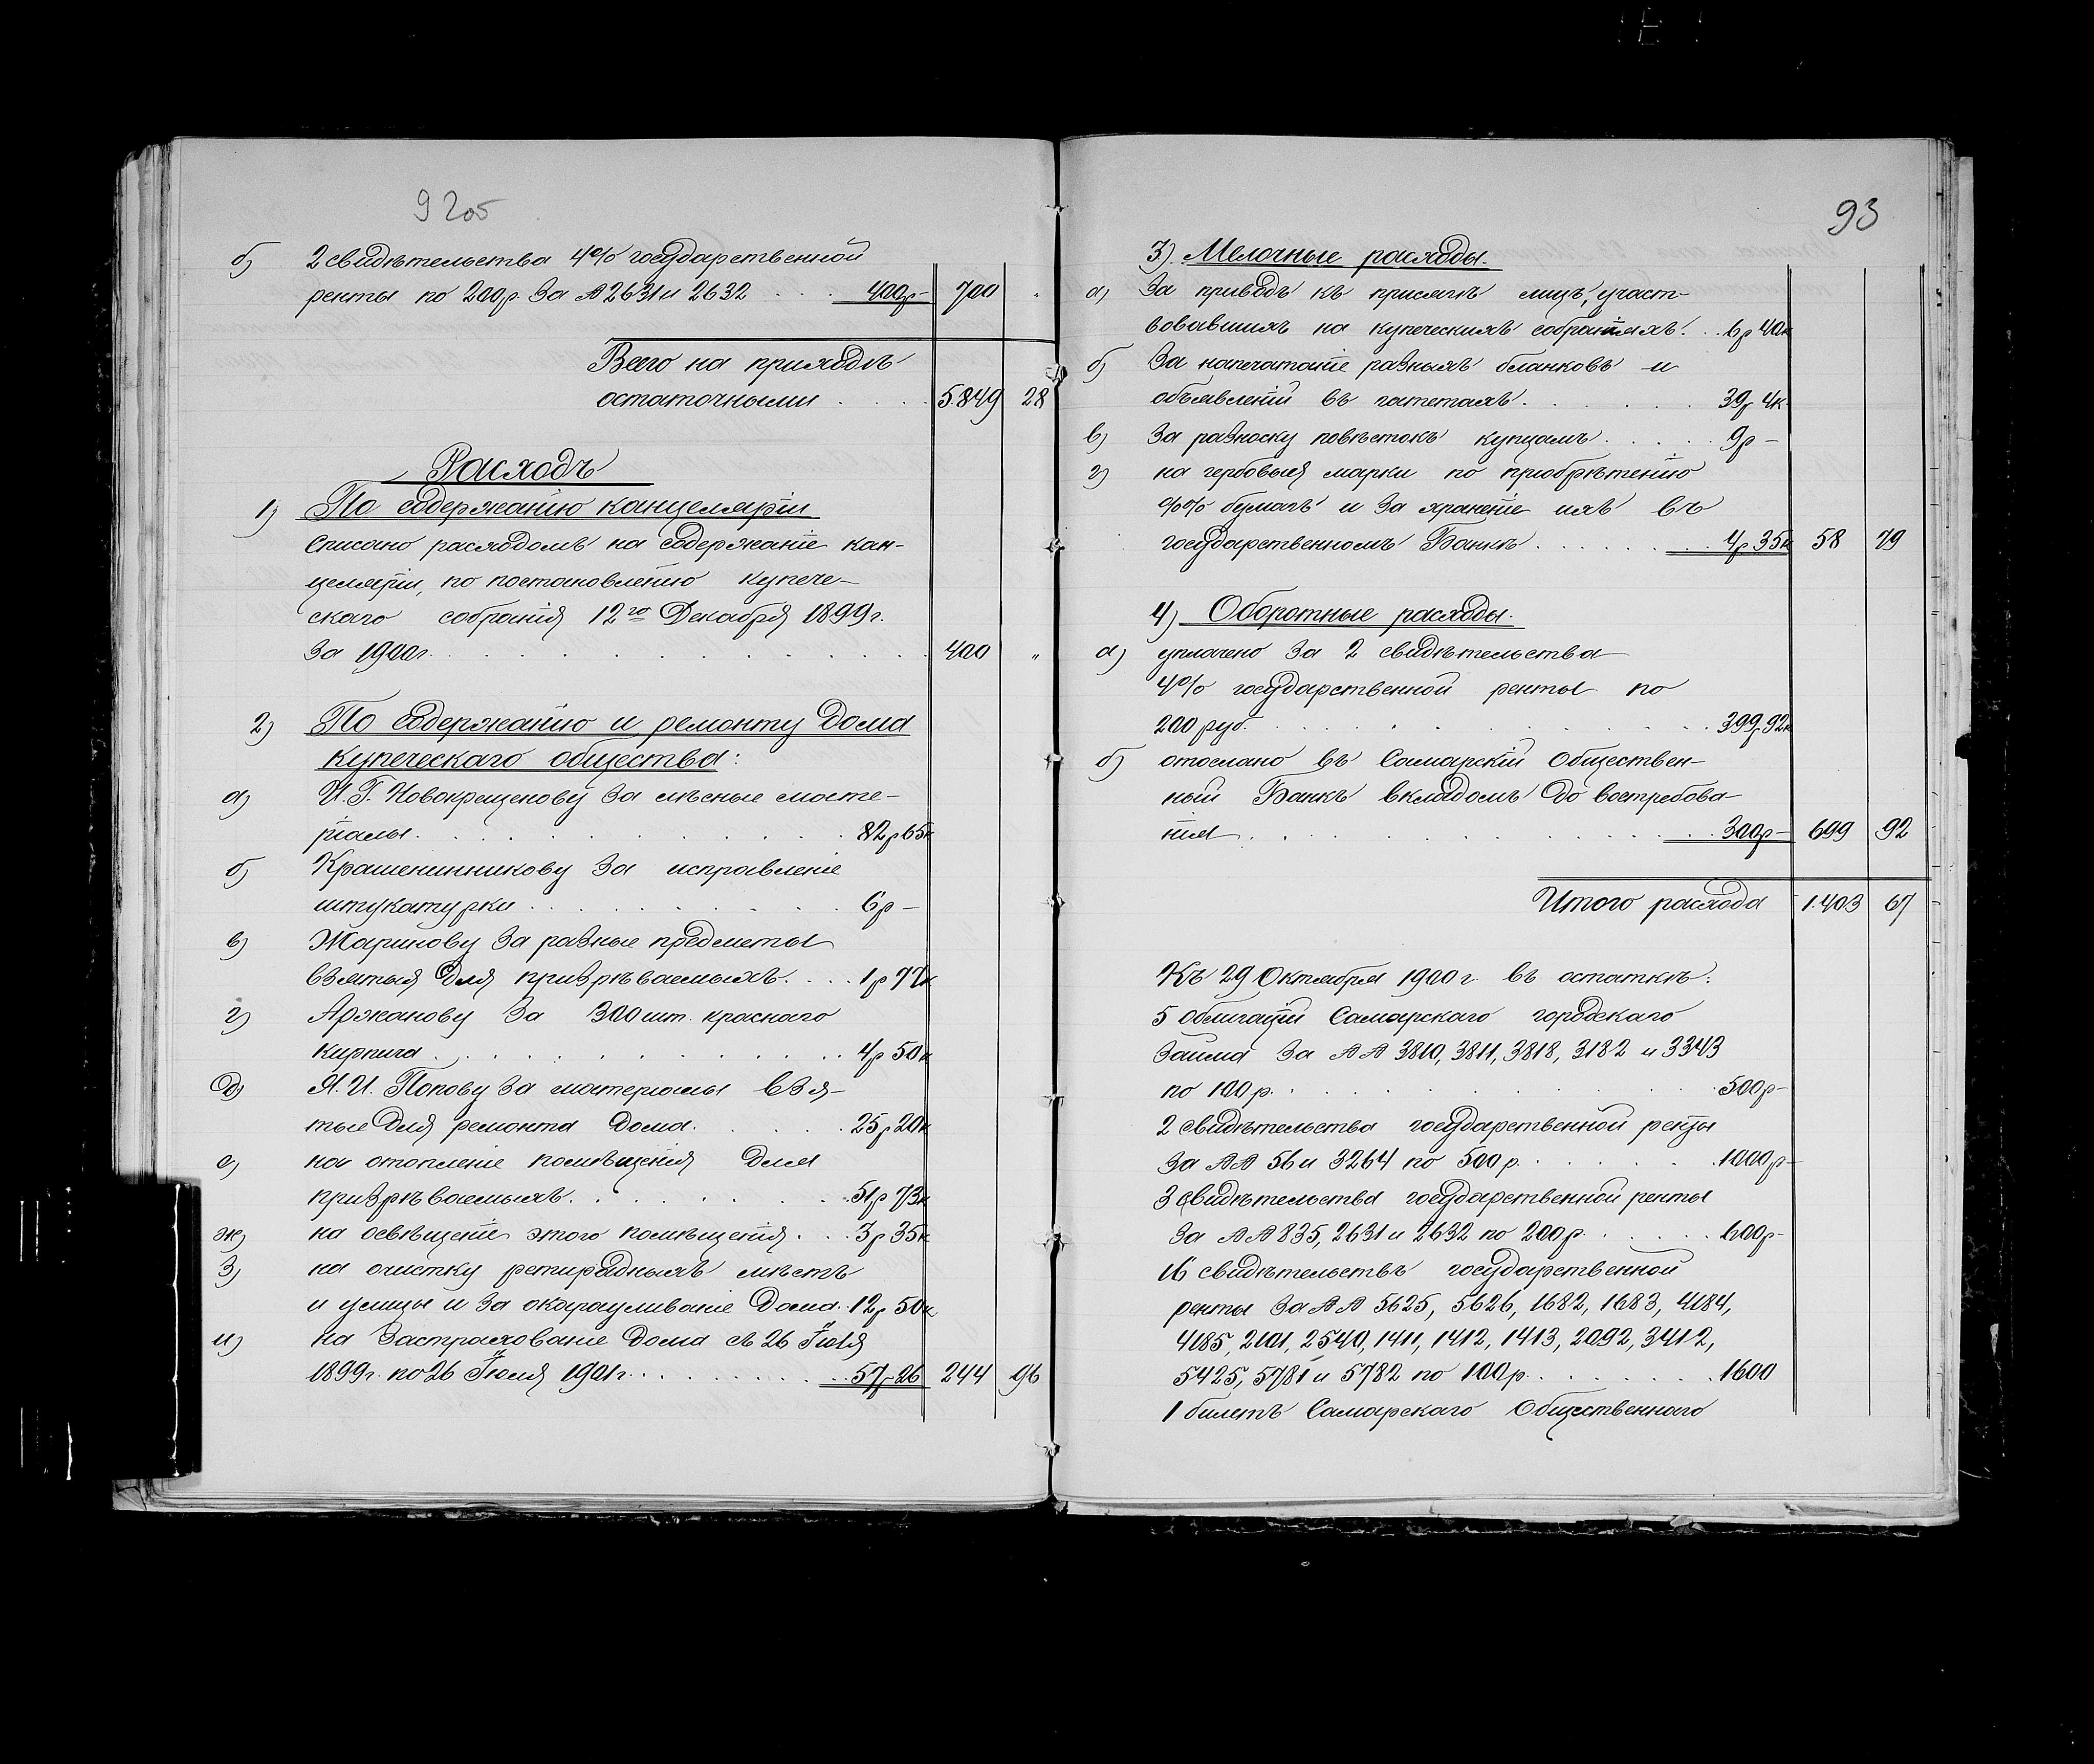 92об
б) 2 свидѣтельства 4% государственной
ренты по 200 р. за № 2631 и 2632 . . . 400р- 700 "
Всего на приходѣ
остаточными . . . . 5849 28
Расходъ
1) По содержанію канцеляріи
Списано расходомъ на содержаніе кан-
целяріи, по постановленію купече-
скаго собранія 12го Декабря 1899 г.
за 1900 г. . . . . . . . . . . 400 "
2) По содержанію и ремонту дома
купеческаго общества:
а) И. Г. Новокрещенову за лѣсные мате-
ріалы . . . . . . . . . . 82р 65к
б) Крашенинникову за исправленіе
штукатурки . . . . . . . . 6р -
в) Жаринову за разные предметы
взятыя для призрѣваемыхъ. . . . 1р 77к
г) Аржанову за 300 шт. краснаго
кирпича . . . . . . . . . . 4р 50к
д) Я. И. Попову за матеріалы взя-
тые для ремонта дома. . . . . . 25р 20к
е) на отопленіе помѣщенія для
призрѣваемыхъ. . . . . . . . 51р 73к
ж) на освѣщеніе этого помѣщенія. . . 3р 35к
з) на очистку ретирадныхъ мѣстъ
и улицы и за окарауливаніе дома. 12р 50к
и) на застрахованіе дома съ 26 Іюля
1899 г. по 26 Іюля 1901 г. . . . . . . . . 57р 26 244 96
93
3). Мелочные расходы.
а) За приводъ къ присягѣ лицъ, участ-
вовавшихъ на купеческихъ собраніяхъ. . . 6р 40к
б) За напечатаніе разныхъ бланковъ и
объявленій въ газетахъ . . . . . . 39р 4к.
в) За разноску повѣстокъ купцамъ . . . . . 9р -
г) на гербовыя марки по пріобрѣтенію
%% бумагъ и за храненіе ихъ въ
государственномъ Банкѣ . . . . . . . . 4р 35к 58 79
4) Оборотные расходы.
а) уплачено за 2 свидѣтельства
4% государственной ренты по
200 руб. . . . . . . . . . . 399р 92к
б) отослано въ Самарскій Обществен-
ный Банкъ вкладомъ до востребова-
нія . . . . . . . . . . . 300р - 699 92
Итого расхода 1.403 67
Къ 29 Октября 1900 г. въ остаткѣ:
5 облигацій Самарскаго городскаго
займа за №№ 3810, 3811, 3818, 3182 и 3343
по 100 р. . . . . . . . . . 500р -
2 свидѣтельства государственной ренты
за №№ 56 и 3264 по 500 р. . . . . . . 1000р -
3 свидѣтельства государственной ренты
за №№ 835, 2631 и 2632 по 200 р. . . . . . . 600р -
16 свидѣтельствъ государственной
ренты за №№ 5625, 5626, 1682, 1683, 4184,
4185, 2101, 2540, 1411, 1412, 1413, 2092, 3412,
5425, 5781 и 5782 по 100 р. . . . . . . . 1600
1 билетъ Самарскаго Общественнаго